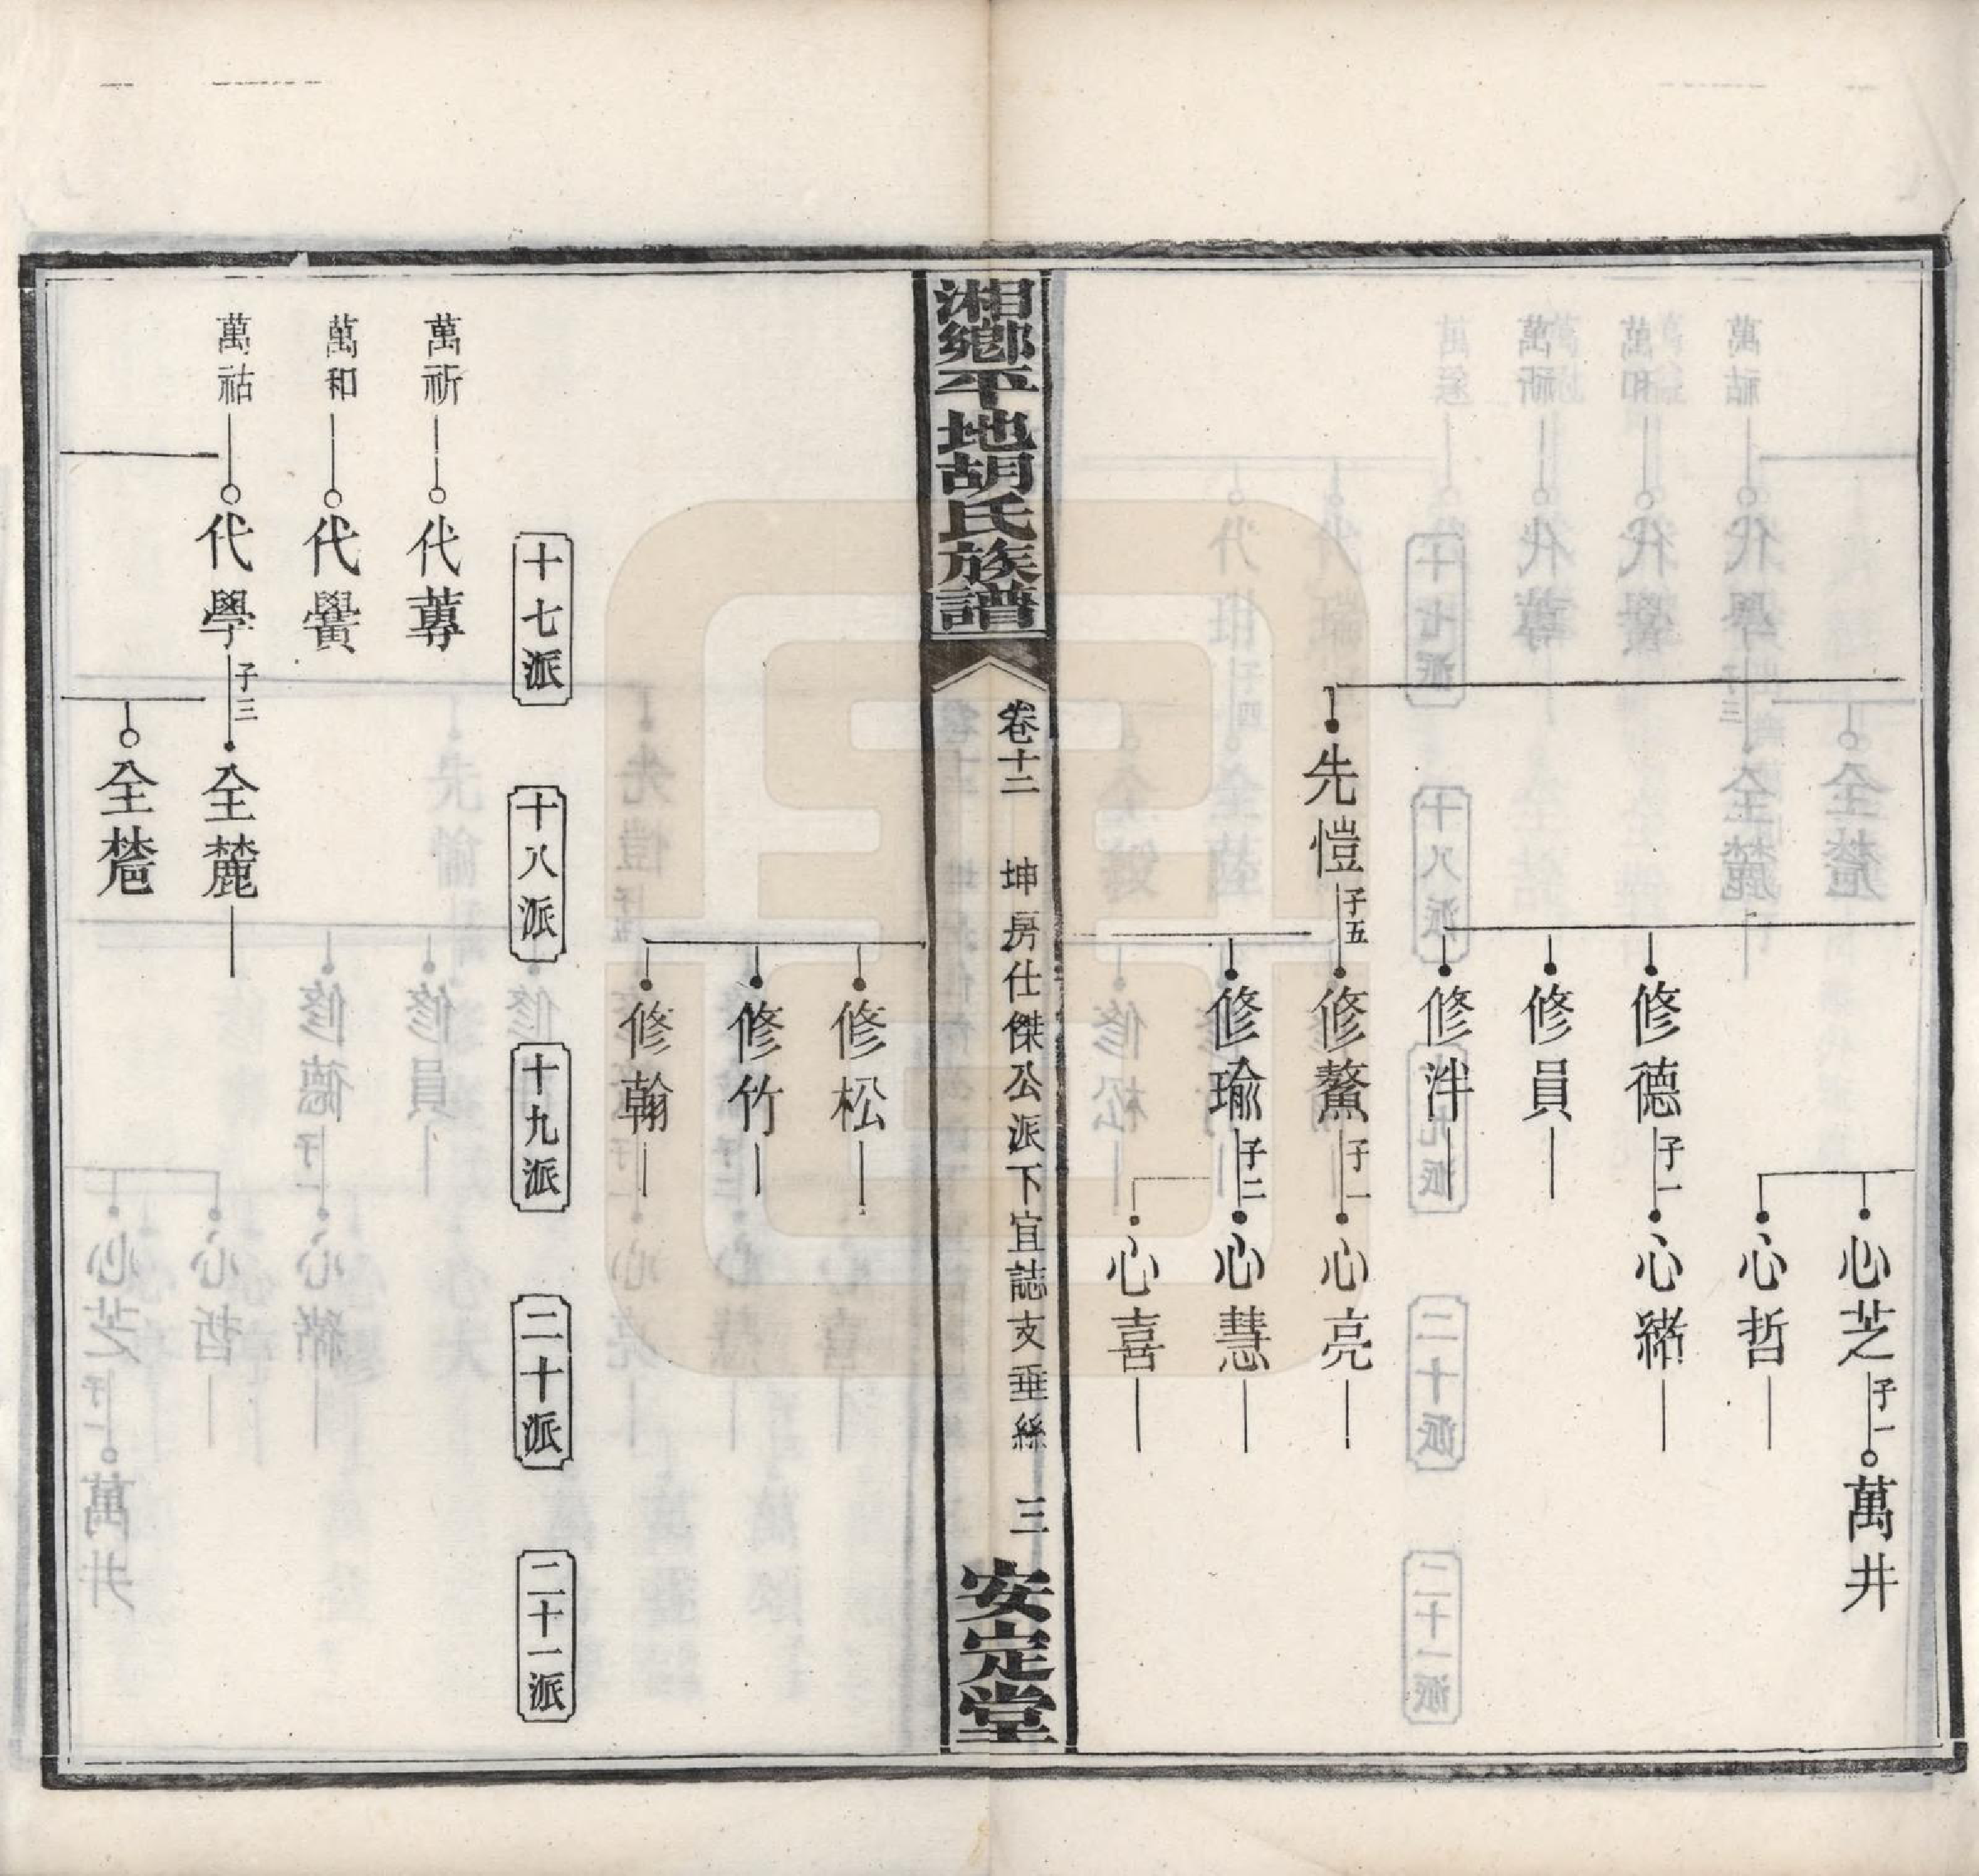 心芝 子一 萬井
心哲
修德 子一 心緒
修員
修泮
先愷 子五 修鰲 子一 心亮
修瑜 子二 心慧
心喜
湘鄉平地胡氏族譜 卷十二 坤房仕傑公派下宜誌支垂絲 三 安定堂
修松
修竹
修翰
十七派 十八派 十九派 二十派 二十一派
萬祈 代蓴
萬和 代黌
萬祜 代學 子三 全麓
全蓖